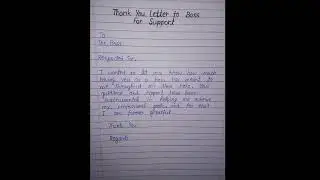 Thank You Letter to Boss
for Support
To
The Boss
Respected Sir,
I wanted to let you know how much
having you as a boss has meant to
me throughout my time here. Your
guidance and support have been
instrumental in helping me achieve
my professional goals, and for that
I am forever grateful.
Thank You
Regards